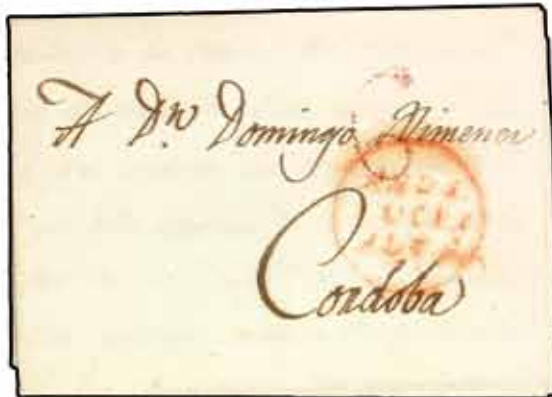 A Dn Domingo Ximenez
Cordoba